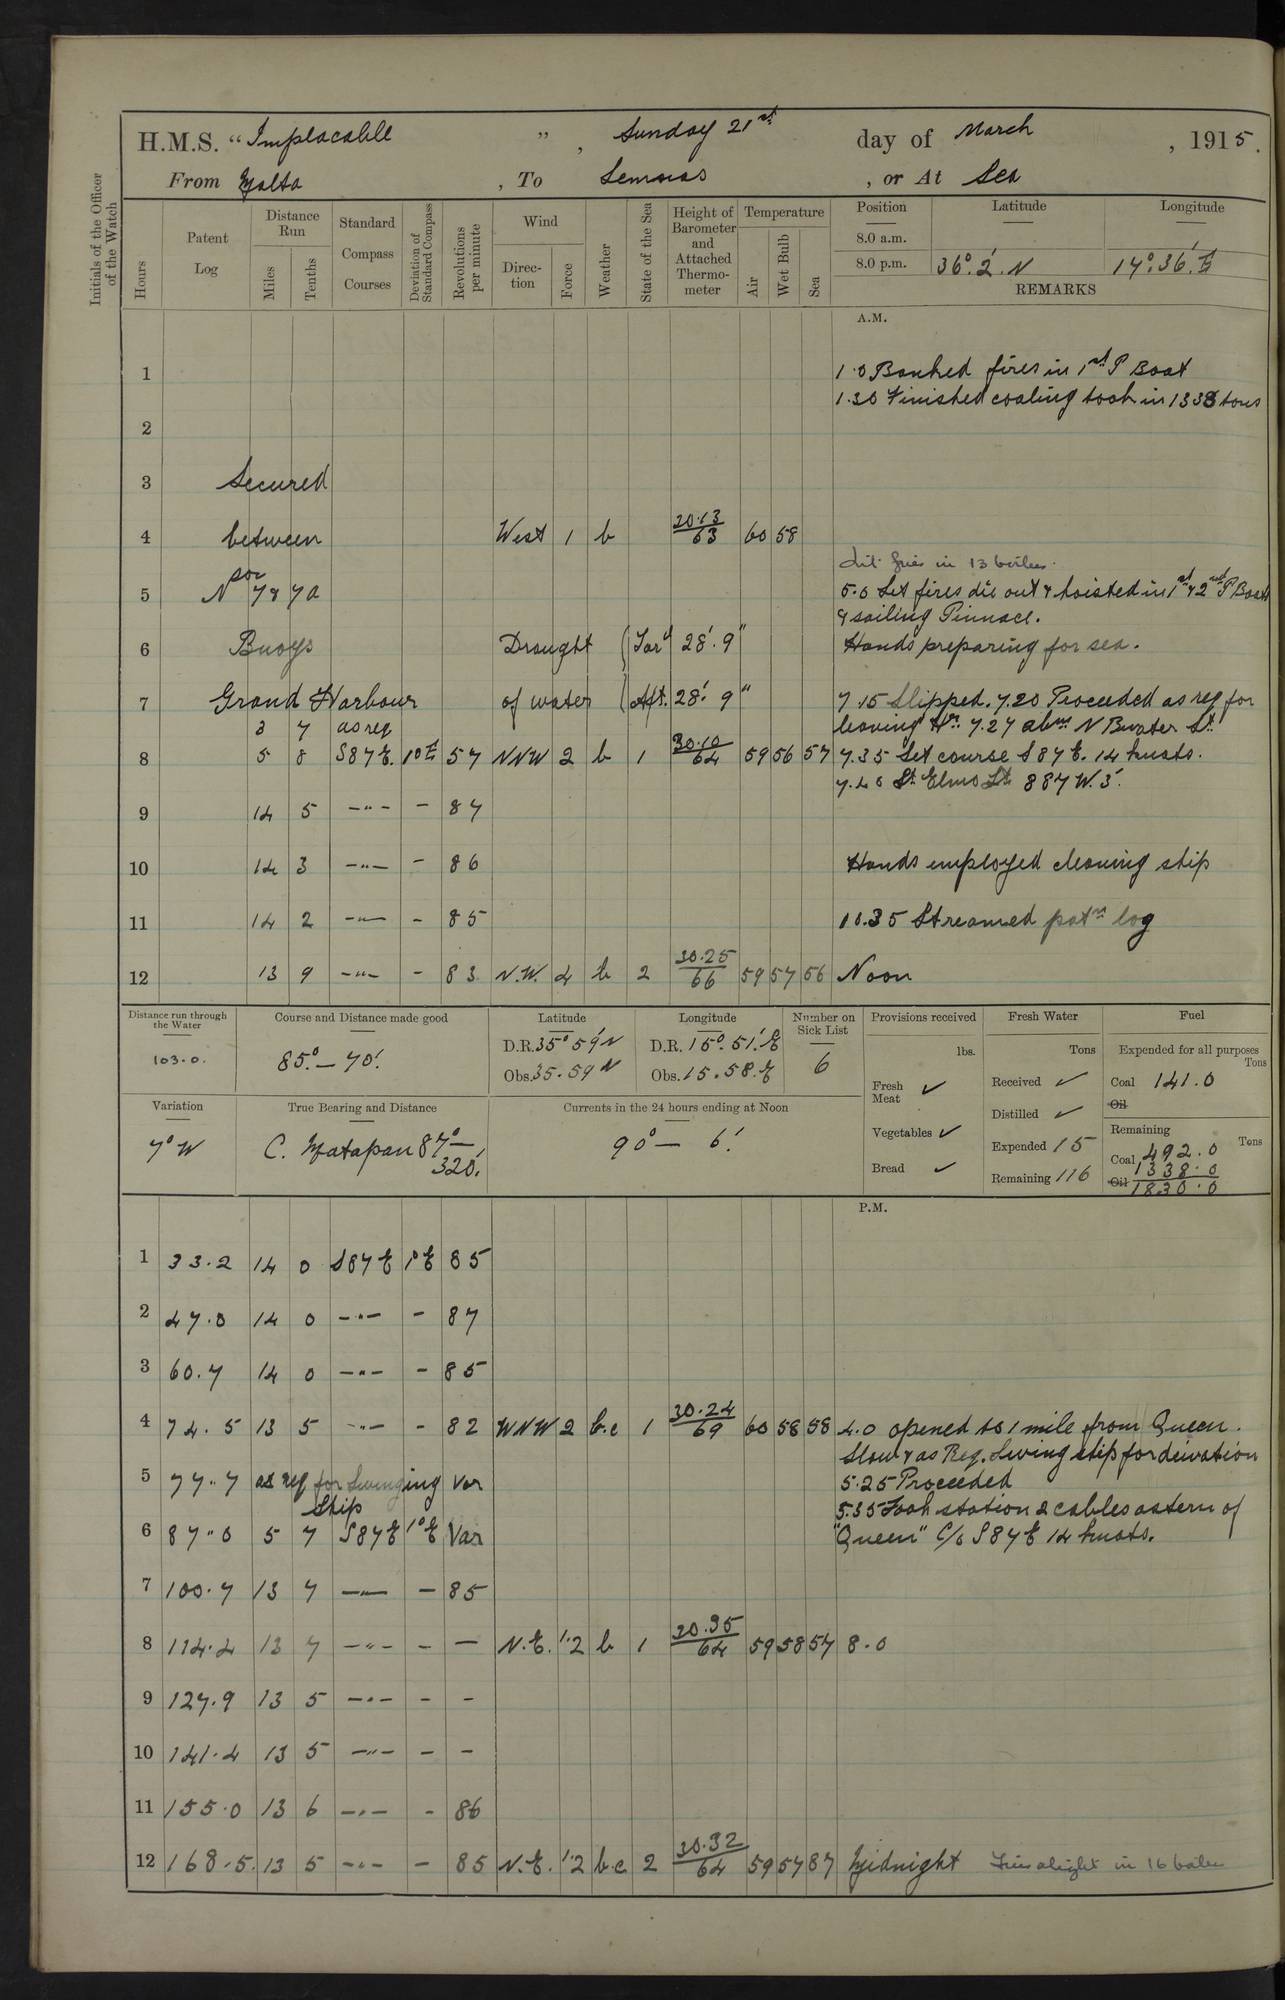 H.M.S. "Implacable ", Sunday 21st day of March, 1915.
From Malta, To Lemnos, or At Sea
Initials of the Officer of the Watch
Hours
Patent Log
Distance Run
Miles
Tenths
Standard Compass Courses
Deviation of Standard Compass
Revolutions per minute
Wind
Direction
Force
Weather
State of the Sea
Height of Barometer and Attached Thermometer
Temperature
Air
Wet Bulb
Sea
Position Latitude Longitude
8.0 a.m.
8.0 p.m. 36° 2' N 14° 36' E
REMARKS
A.M.
1 1.0 Banked fires in 1st P Boat
1.30 Finished coaling took in 1338 tons
2
3 Secured
4 between West 1 b 30.13/63 60 58
Lit fires in 13 boilers.
5 Nos 7 & 7A 5.0 Let fires die out & hoisted in 1st & 2nd P Boats
& sailing Pinnace.
6 Buoys Draught (For'd 28' 9" Hands preparing for sea.
7 Grand Harbour of water (Aft. 28' 9" 7.15 Slipped. 7.20 Proceeded as req for
3 7 as req leaving Hr. 7.27 abm N Bwater Lt.
8 5 8 S87E. 1°E 57 NNW 2 b 1 30.10/64 59 56 57 7.35 Set course S87E. 14 knots.
7.40 St. Elmo Lt. S87W. 3'.
9 14 5 -"- - 87
10 14 3 -"- - 86 Hands employed cleaning ship
11 14 2 -"- - 85 10.35 Streamed patn log
12 13 9 -"- - 83 N.W. 4 b 2 30.25/66 59 57 56 Noon
Distance run through the Water
103.0.
Course and Distance made good
85° — 70'.
Latitude
D.R. 35° 59' N
Obs. 35.59 N
Longitude
D.R. 15° 51' E
Obs. 15.58.E
Number on Sick List
6
Provisions received
lbs.
Fresh Meat ✓
Vegetables ✓
Bread ✓
Fresh Water
Tons
Received ✓
Distilled ✓
Expended 15
Remaining 116
Fuel
Expended for all purposes
Tons
Coal 141.0
Oil
Remaining
Tons
Coal 492.0
1338.0
Oil 1830.0
Variation
7° W
True Bearing and Distance
C. Matapan 87° —
320'.
Currents in the 24 hours ending at Noon
90° — 6'.
P.M.
1 33.2 14 0 S87E 1°E 85
2 47.0 14 0 -"- - 87
3 60.7 14 0 -"- - 85
4 74.5 13 5 -"- - 82 WNW 2 b.c 1 30.24/69 60 58 58 4.0 opened to 1 mile from Queen.
Slow & as Req. Swing ship for deviation
5 77.7 as req for Swinging Var 5.25 Proceeded
Ship 5.35 Took station 2 cables astern of
6 87.0 5 7 S87E 1°E Var "Queen" C/c S87E 14 knots.
7 100.7 13 7 -"- - 85
8 114.4 13 7 -"- - - N.E. 1.2 b 1 30.35/64 59 58 57 8.0
9 127.9 13 5 -"- - -
10 141.4 13 5 -"- - -
11 155.0 13 6 -"- - 86
12 168.5. 13 5 -"- - 85 N.E. 1.2 b.c 2 30.32/64 59 57 87 Midnight Fires alight in 16 boilers